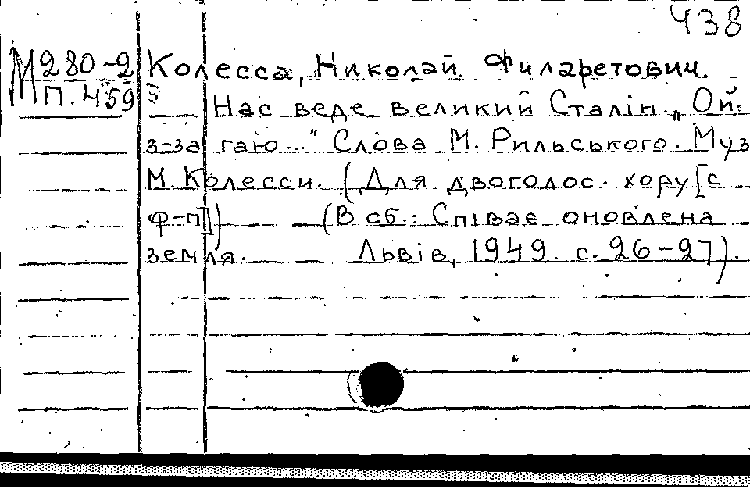 438
М280-2
П.459
Колесса, Николай Филаретович.
Нас веде великий Сталін „Ой:
з-за гаю..." Слова М. Рильського. Муз
М. Колесси. (Для двоголос. хору [с
ф-п])      (В сб.: Співає оновлена
земля.      Львів, 1949. с. 26-27).